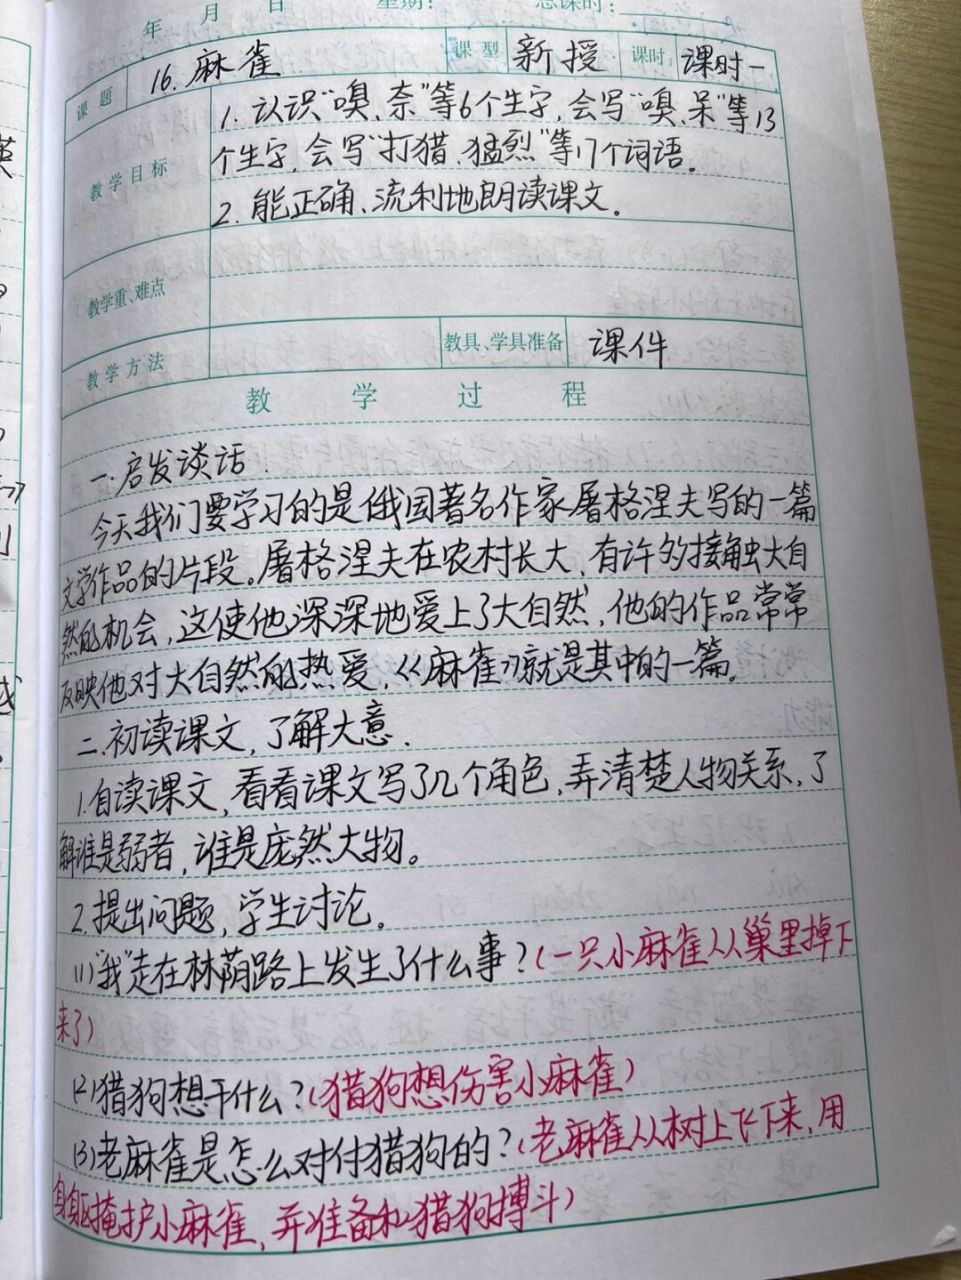 年 月 日 星期: 总课时:
课题 16.麻雀 课型 新授 课时 课时一
教学目标 1. 认识“嗅、奈”等6个生字,会写“嗅、呆”等13
个生字,会写“打猎、猛烈”等17个词语。
2. 能正确、流利地朗读课文。
教学重、难点
教学方法 教具、学具准备 课件
教 学 过 程
一.启发谈话.
今天我们要学习的是俄国著名作家屠格涅夫写的一篇
文学作品的片段。屠格涅夫在农村长大,有许多接触大自
然的机会,这使他深深地爱上了大自然,他的作品常常
反映他对大自然的热爱,《麻雀》就是其中的一篇。
二.初读课文,了解大意.
1.自读课文,看看课文写了几个角色,弄清楚人物关系,了
解谁是弱者,谁是庞然大物。
2.提出问题,学生讨论。
(1)“我”走在林荫路上发生了什么事?(一只小麻雀从巢里掉下
来了)
(2)猎狗想干什么?(猎狗想伤害小麻雀)
(3)老麻雀是怎么对付猎狗的?(老麻雀从树上飞下来,用
身躯掩护小麻雀,并准备和猎狗搏斗)